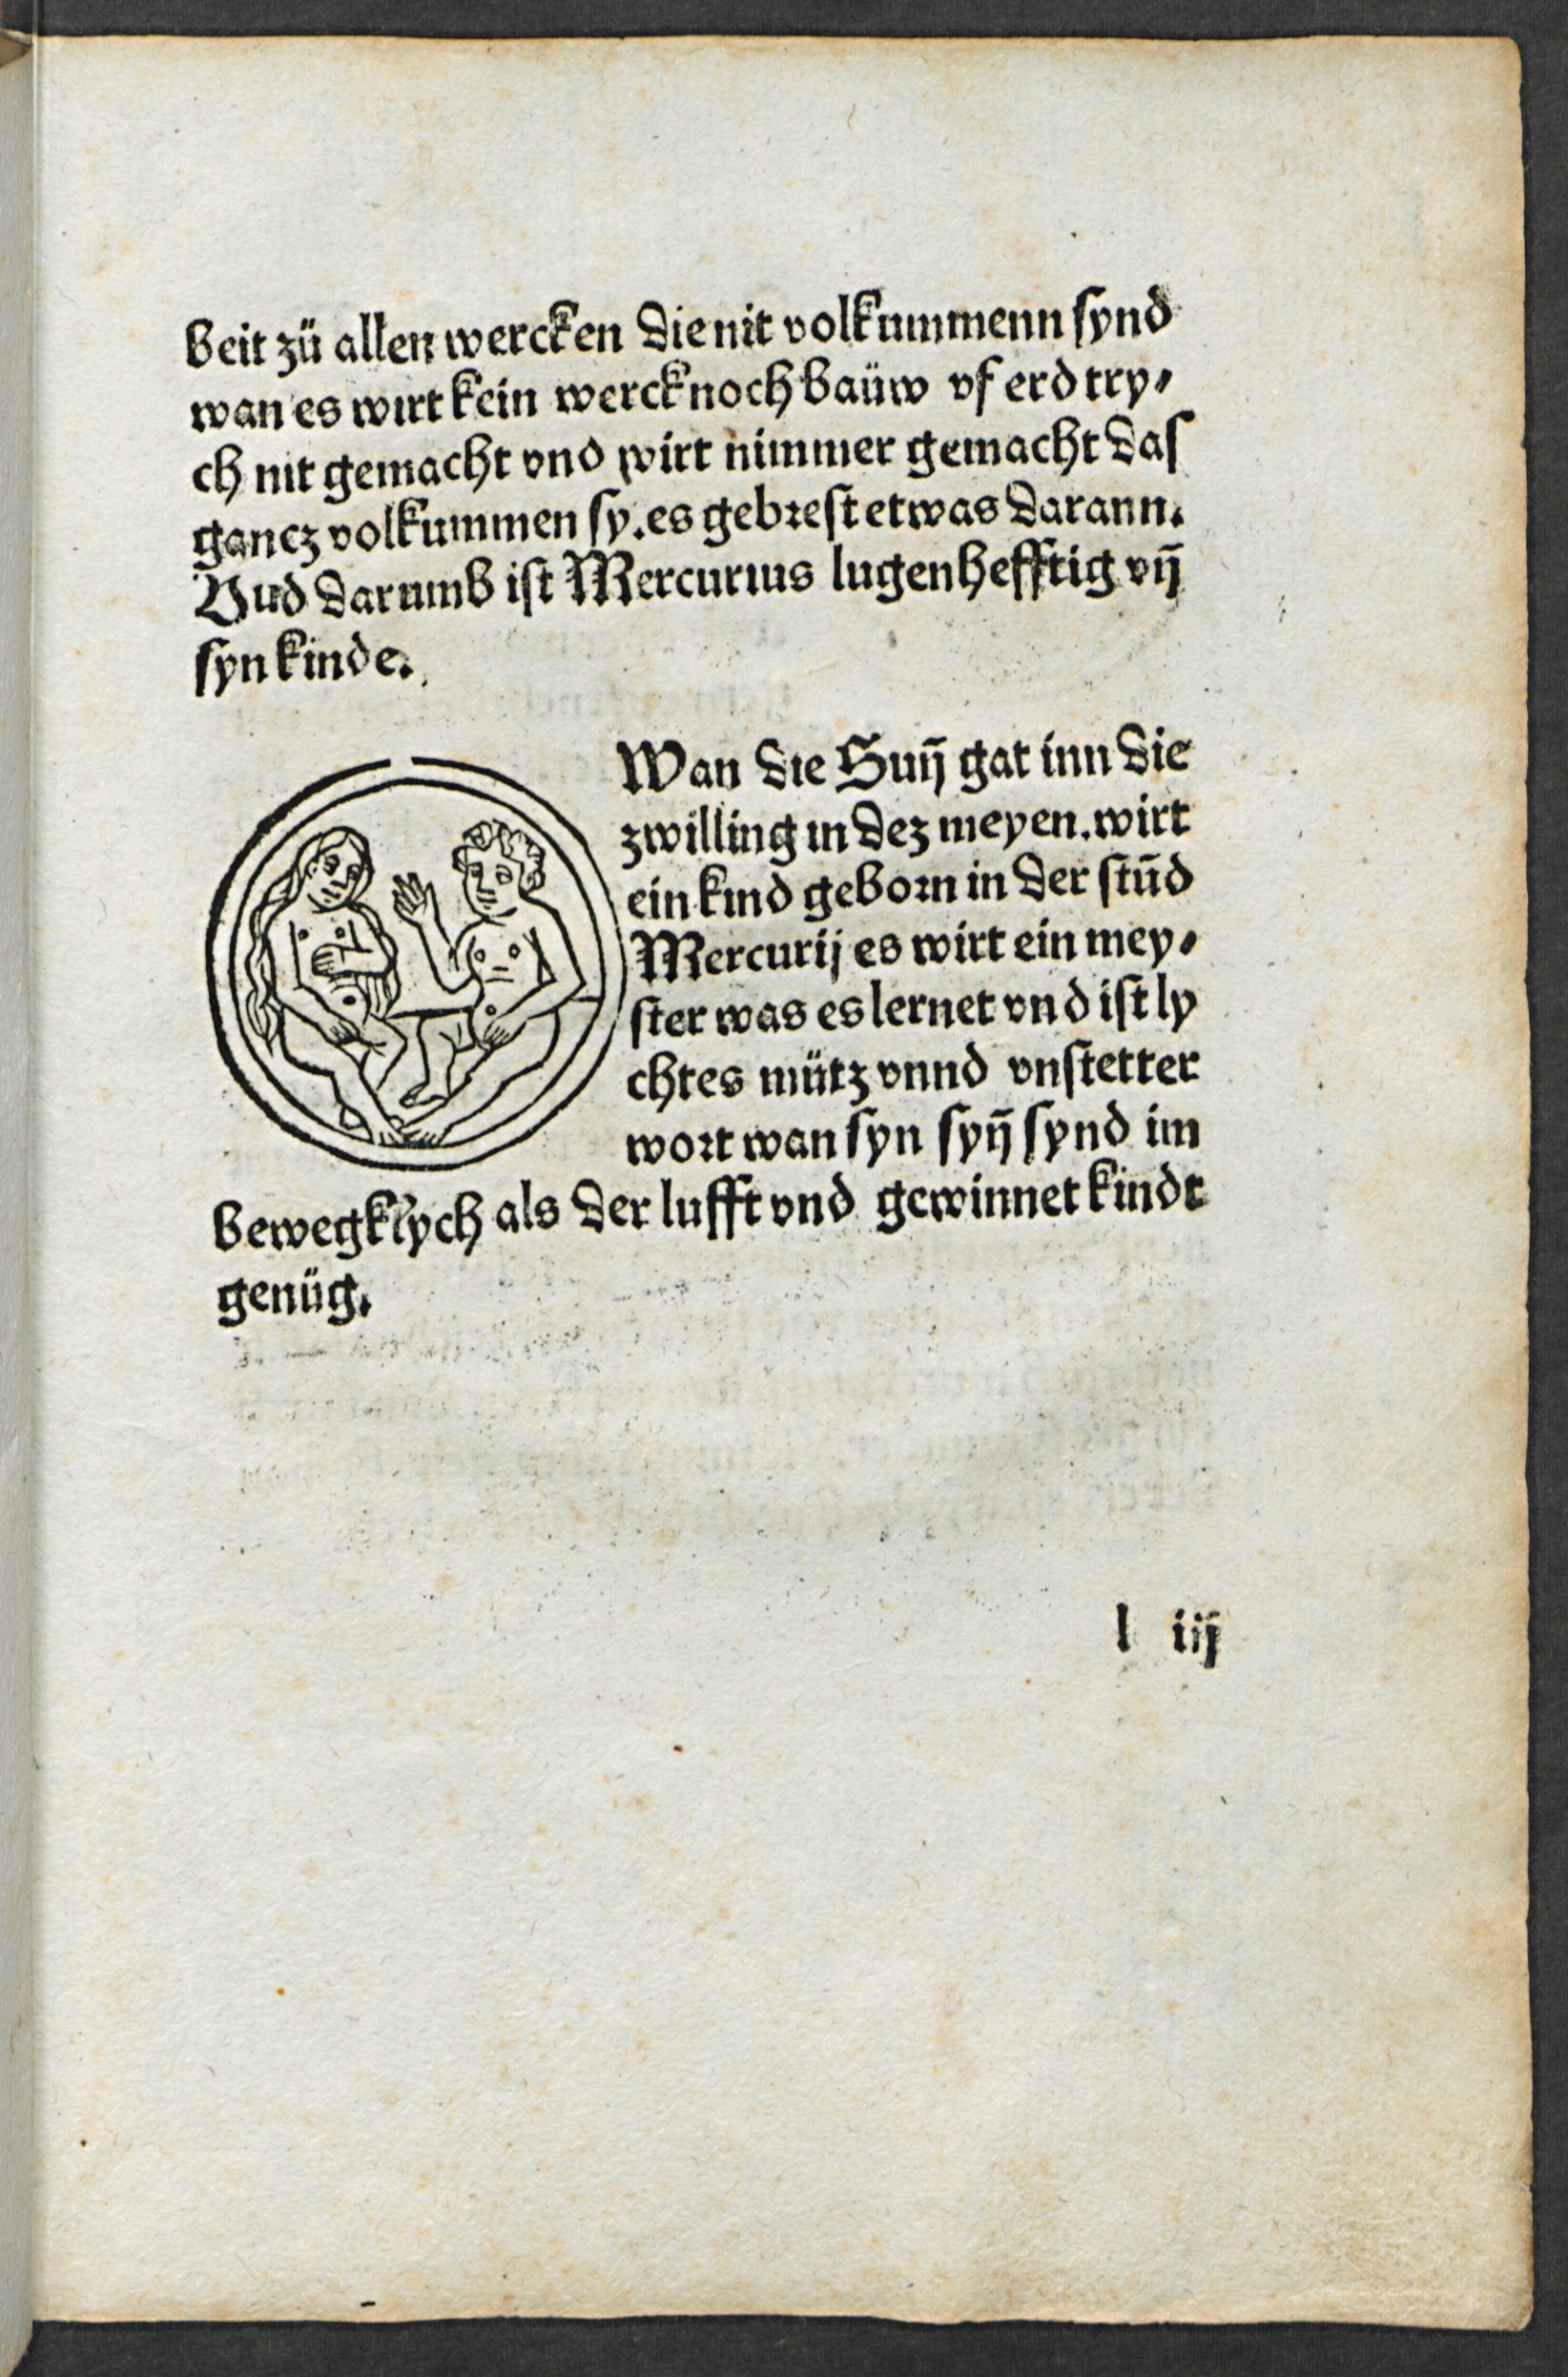 beit zü allen wercken die nit volkummenn synd
wan es wirt kein werck noch baüw vf erd try⸗
ch nit gemacht vnd wirt nimmer gemacht das
gancz volkummen sy. es gebrest etwas darann.
Vud darumb ist Mercurius lugenhefftig vn̄
syn kinde.
Wan die Sun̄ gat inn die
zwilling in dez meyen. wirt
ein kind geborn in der stūd
Mercurij es wirt ein mey⸗
ster was es lernet vnd ist ly
chtes mütz vnnd vnstetter
wort wan syn syn̄ synd im
bewegklych als der lufft vnd gewinnet kindt
genüg.
l iij